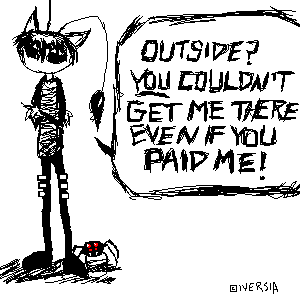 OUTSIDE?
YOU COULDN'T
GET ME THERE
EVEN IF YOU
PAID ME!
©IVERSIA